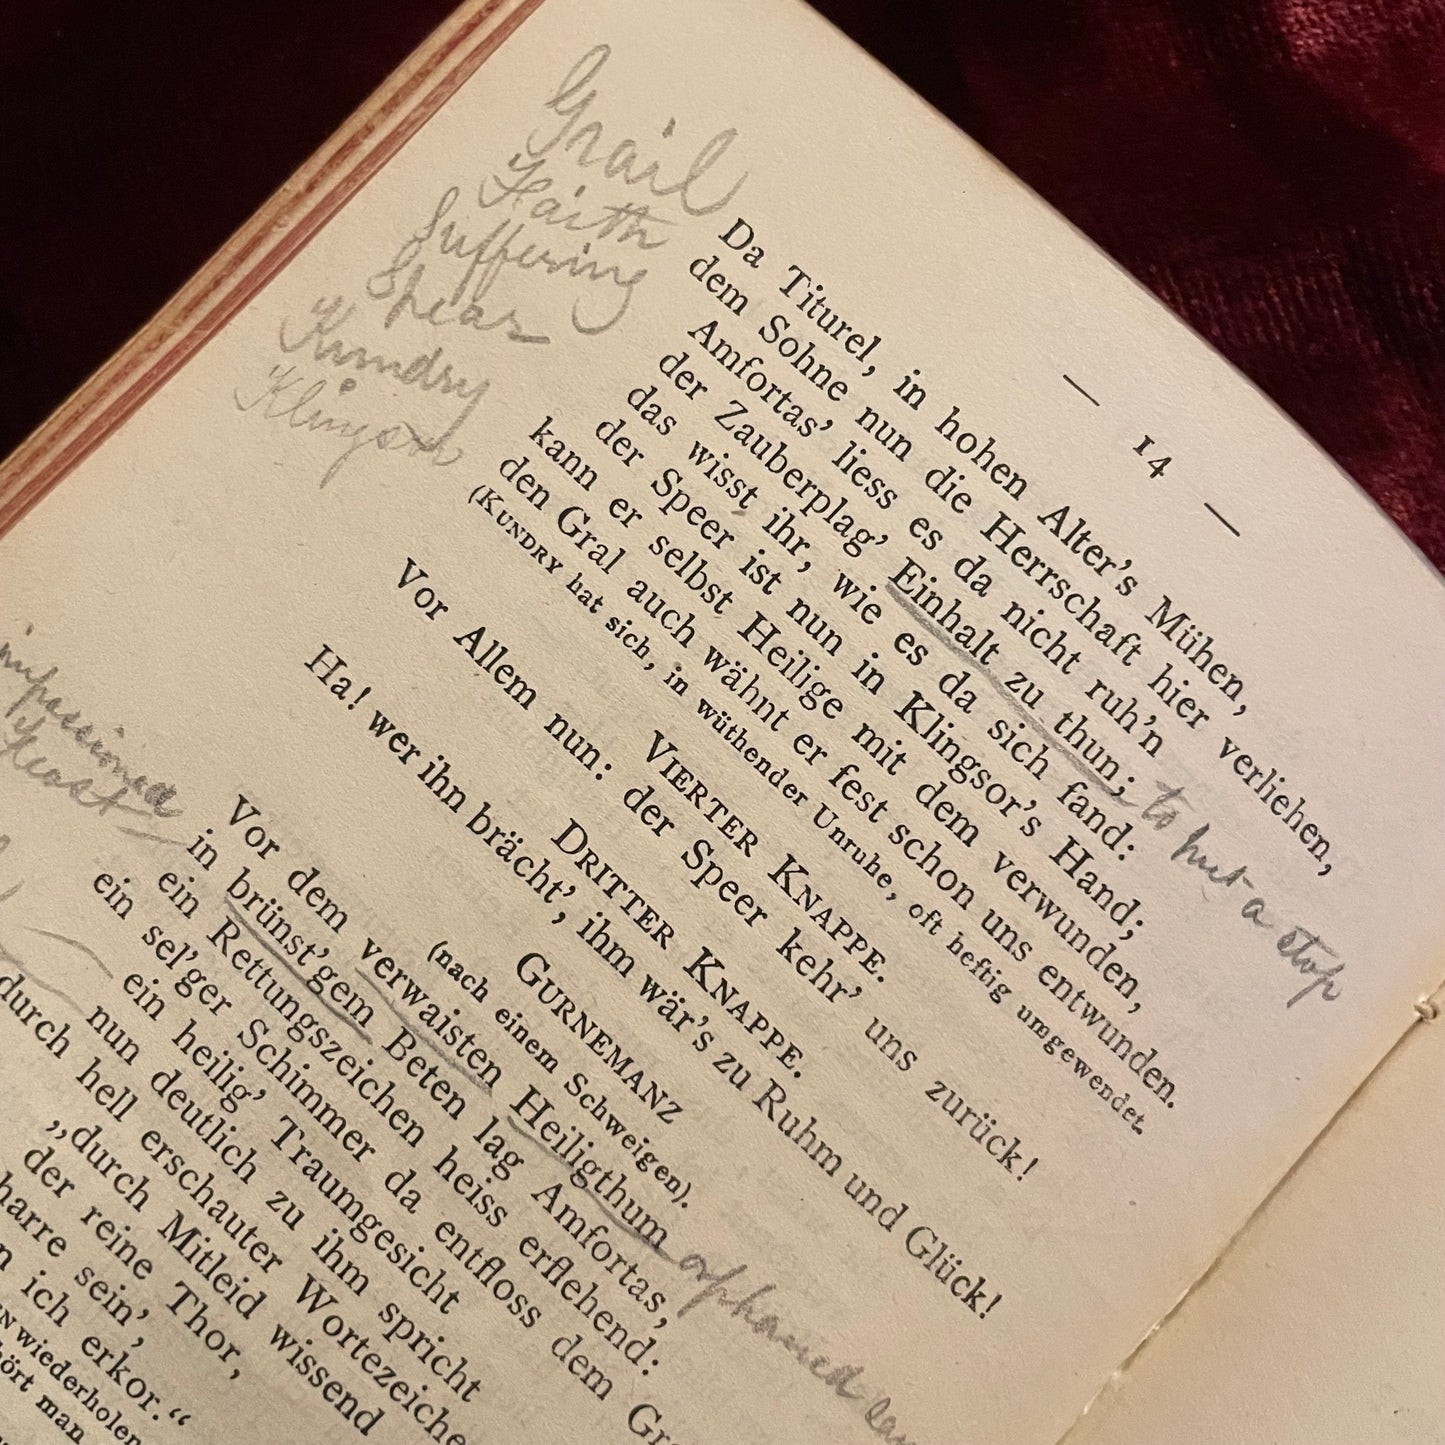 Grail
Faith
Suffering
Spear
Kundry
Klingsor
— 14 —
Da Titurel, in hohen Alter's Mühen,
dem Sohne nun die Herrschaft hier verliehen,
Amfortas' liess es da nicht ruh'n
der Zauberplag' Einhalt zu thun; to put a stop
das wisst ihr, wie es da sich fand:
der Speer ist nun in Klingsor's Hand;
kann er selbst Heilige mit dem verwunden,
den Gral auch wähnt er fest schon uns entwunden.
(KUNDRY hat sich, in wüthender Unruhe, oft heftig umgewendet.
VIERTER KNAPPE.
Vor Allem nun: der Speer kehr' uns zurück!
DRITTER KNAPPE.
Ha! wer ihn brächt', ihm wär's zu Ruhm und Glück!
GURNEMANZ
(nach einem Schweigen).
Vor dem verwaisten Heiligthum orphaned
impassioned
in brünst'gem Beten lag Amfortas,
ein Rettungszeichen heiss erflehend:
ein sel'ger Schimmer da entfloss dem
ein heilig' Traumgesicht
nun deutlich zu ihm spricht
durch hell erschauter Wortezeiche
„durch Mitleid wissend
der reine Thor,
harre sein',
ich erkor.“
wiederholen
man